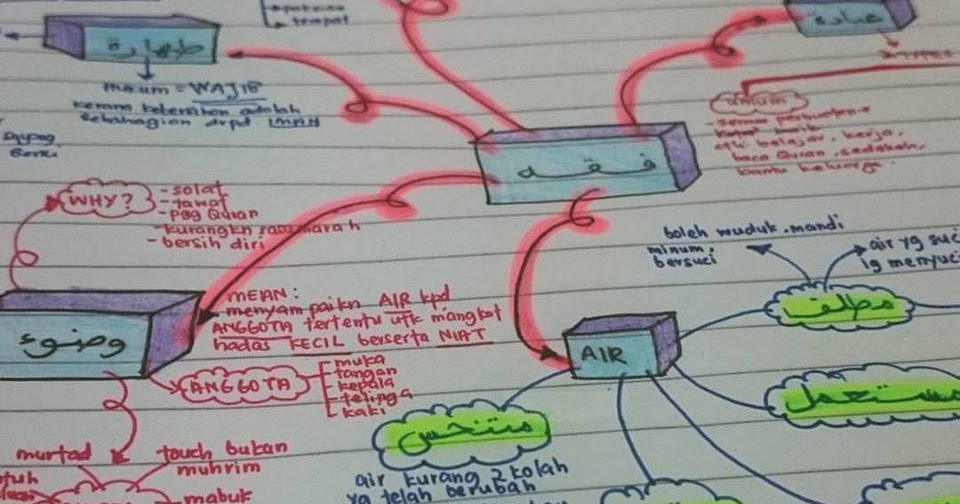 tempat
طهارة
عبادة
hukum = WAJIB
kerana kebersihan adalah
sebahagian drpd IMAN
umum
- semua perbuatan
etc: belajar, kerja,
baca Quran, sedekah,
bantu keluarga.
فقه
WHY?
- solat
- tawaf
- pgg Quran
- kurangkn rasa marah
- bersih diri
MEAN:
menyampaikn AIR kpd
ANGGOTA tertentu utk mangkat
hadas KECIL berserta NIAT
وضوء
ANGGOTA
muka
tangan
kepala
telinga
kaki
murtad
touch bukan
muhrim
mabuk
boleh wuduk, mandi
minum,
bersuci
air yg suci
lg menyuci
مطلق
AIR
مستعمل
متنجس
air kurang 2 kolah
yg telah berubah